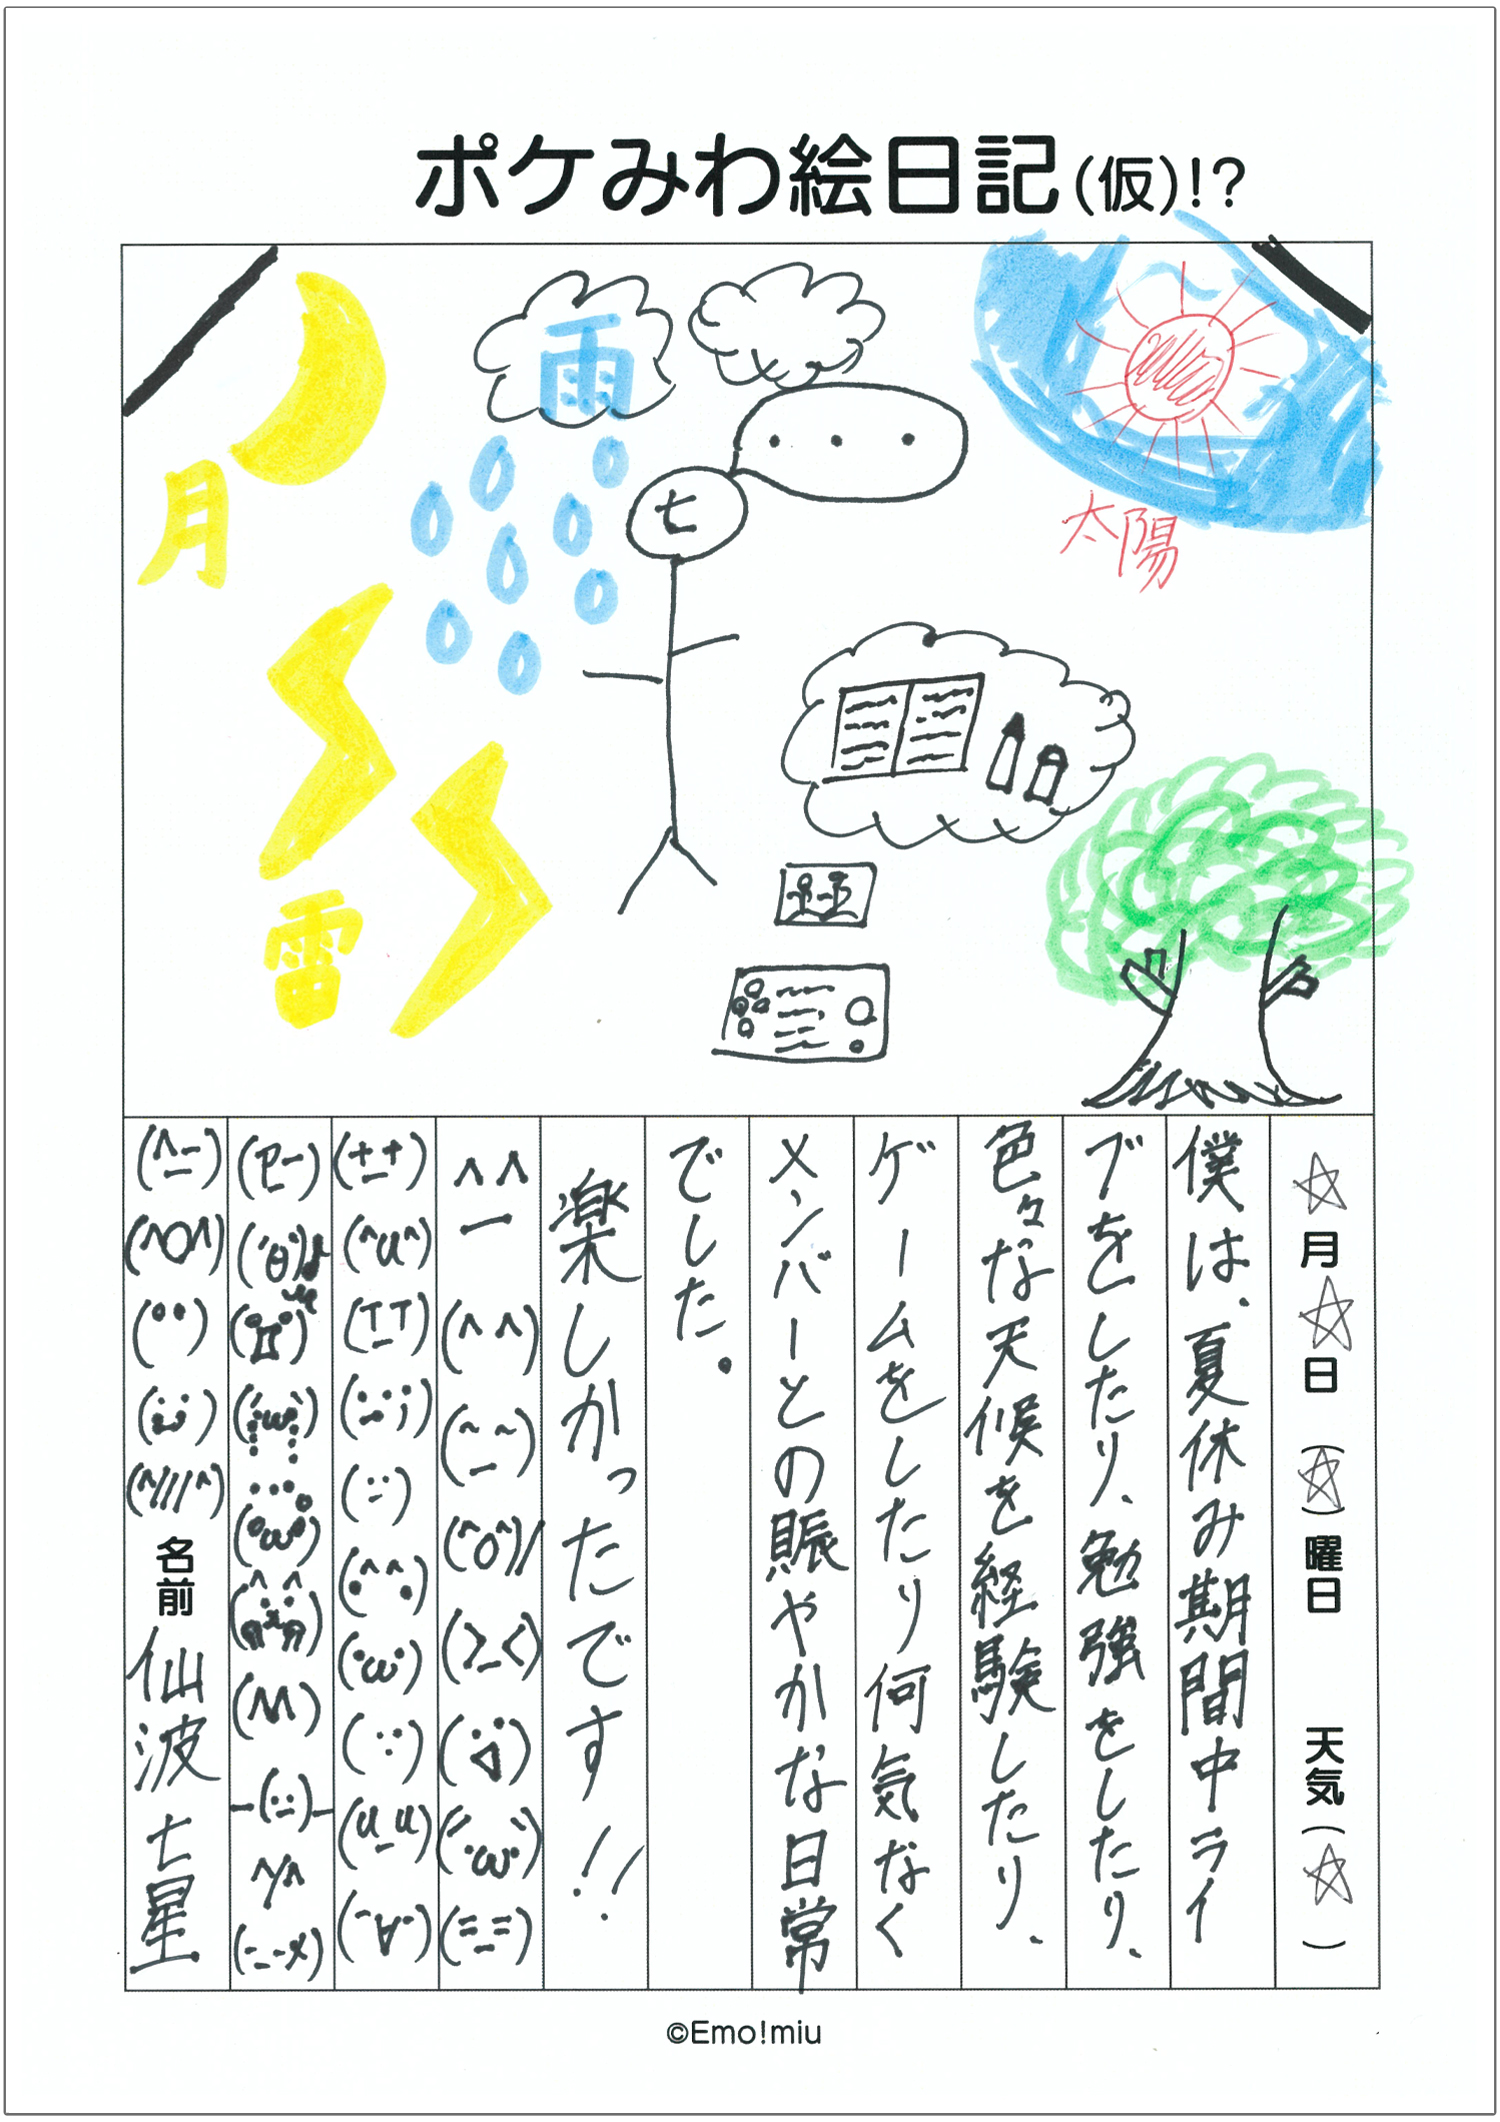 ポケみわ絵日記(仮)!?
月
雨
七
・・・
太陽
雷
☆月☆日(☆)曜日 天気(☆)
僕は、夏休み期間中ライ
ブをしたり、勉強をしたり、
色々な天候を経験したり、
ゲームをしたり何気なく
メンバーとの賑やかな日常
でした。
楽しかったです!!
名前 仙波七星
©Emo!miu